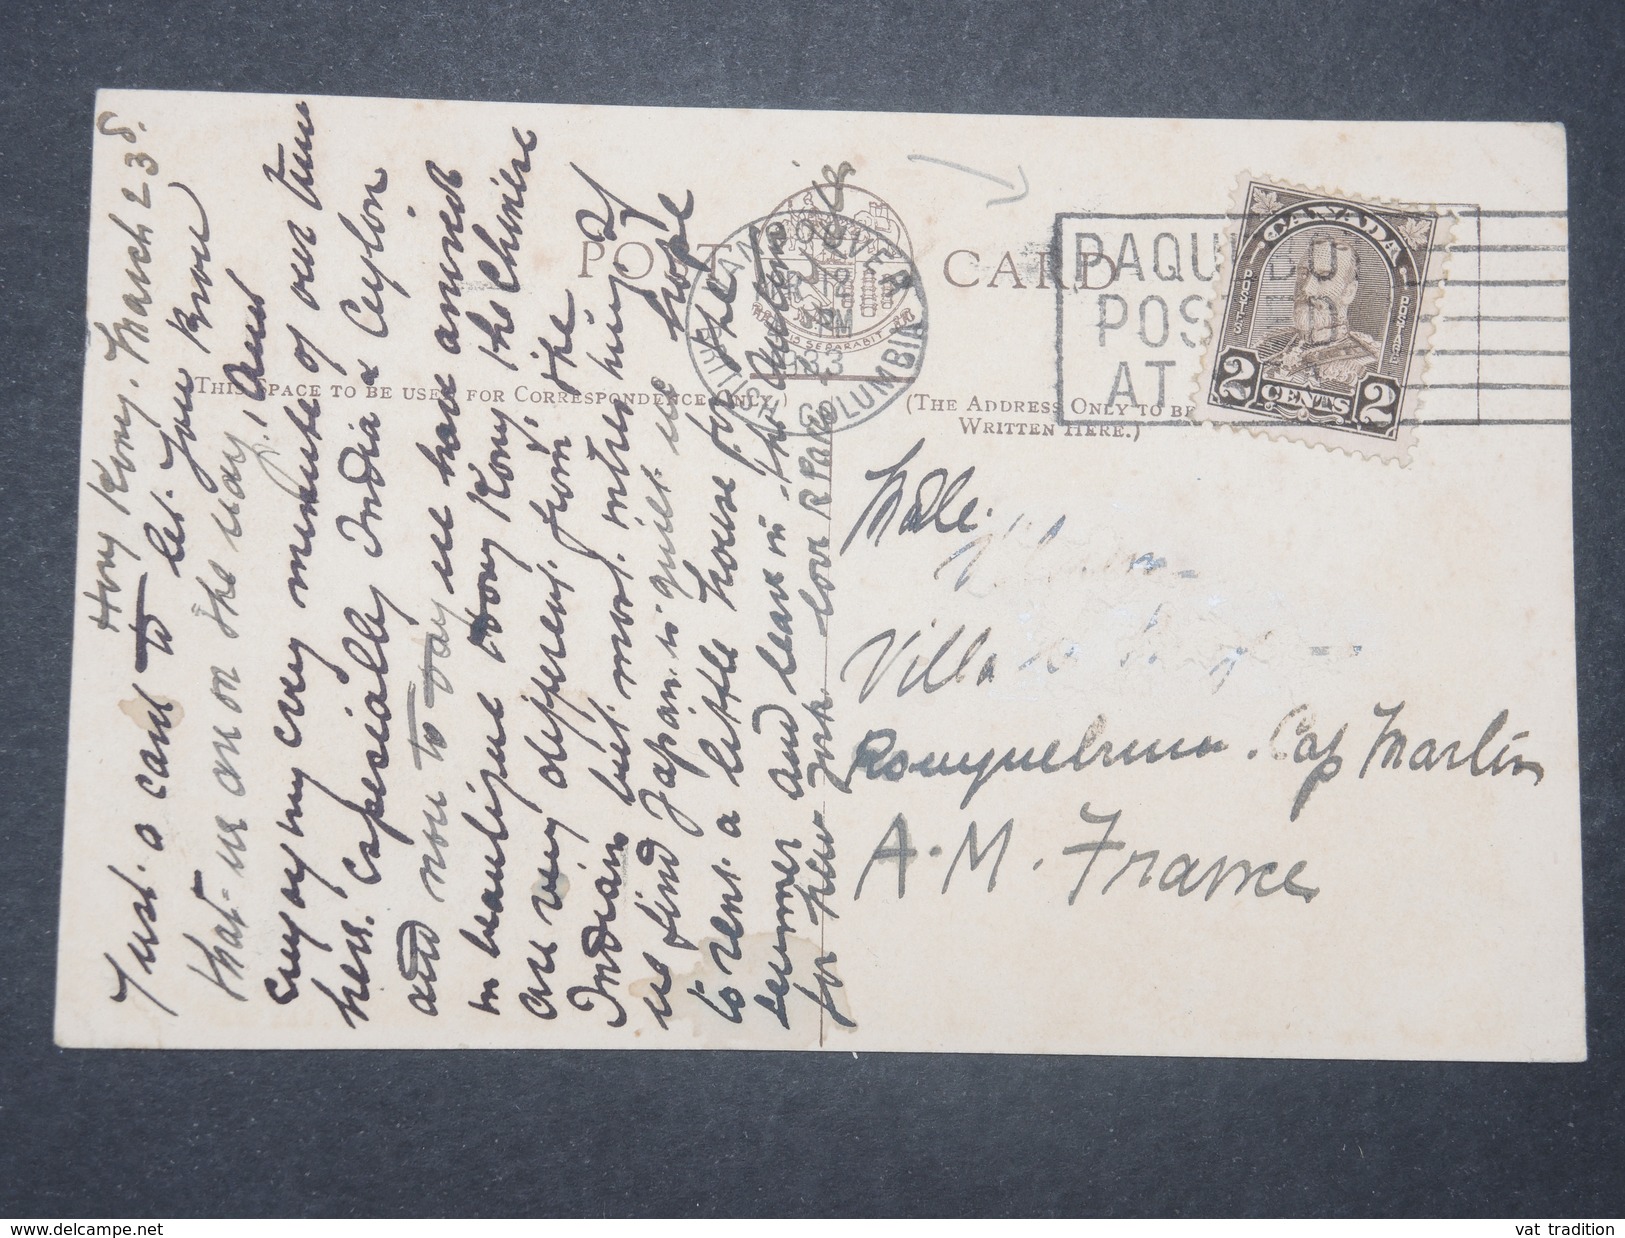 Hong Kong. March 23d.
Just a card to let you know
that we are on the way, and
enjoying every minute of our time
here. Especially India & Ceylon
and now to day we have arrived
in beautiful Hong Kong the Chinese
are very different from the
Indians but most interesting
we find Japan is quite we hope
to rent a little house for the
summer and leave in the Autumn
for New York love
POST CARD
THIS SPACE TO BE USED FOR CORRESPONDENCE ONLY.)
(THE ADDRESS ONLY TO BE
WRITTEN HERE.)
VANCOUVER
BRITISH COLUMBIA
PM
1933
PAQUEBOT
POSTED
AT
CANADA
POSTES POSTAGE
2 CENTS 2
Villa
Cap Martin
A.M. France
vat_tradition
www.delcampe.net